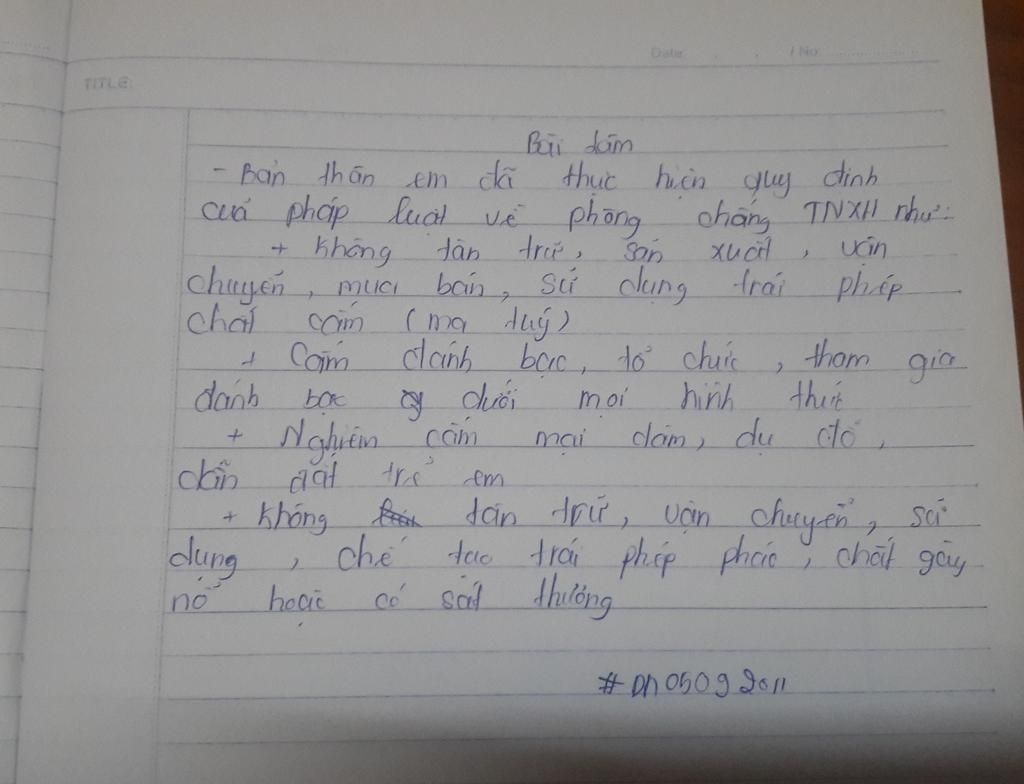 Date: / No:
TITLE:
Bài làm
- Bản thân em đã thực hiện quy định
cuả pháp luật về phòng chống TNXH như:
+ Không tàn trữ, sản xuất, vận
chuyển, mua bán, sử dụng trái phép
chất cấm (ma tuý)
+ Cấm đánh bạc, tổ chức, tham gia
đánh bạc dưới mọi hình thức
+ Nghiêm cấm mại dâm, dụ dỗ,
dẫn dắt trẻ em
+ Không tàn trữ, vận chuyển, sử
dụng, chế tạo trái phép pháo, chất gây
nổ hoặc có sát thương
#DN05092011